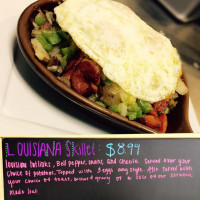 LOUISIANA Skillet: $8.99
Louisiana hotlinks, Bell pepper, onions, and cheese. Served over your
choice of potatoes. Topped with 2 eggs any style. Also served with
your choice of toast, biscuit gravy or a
made